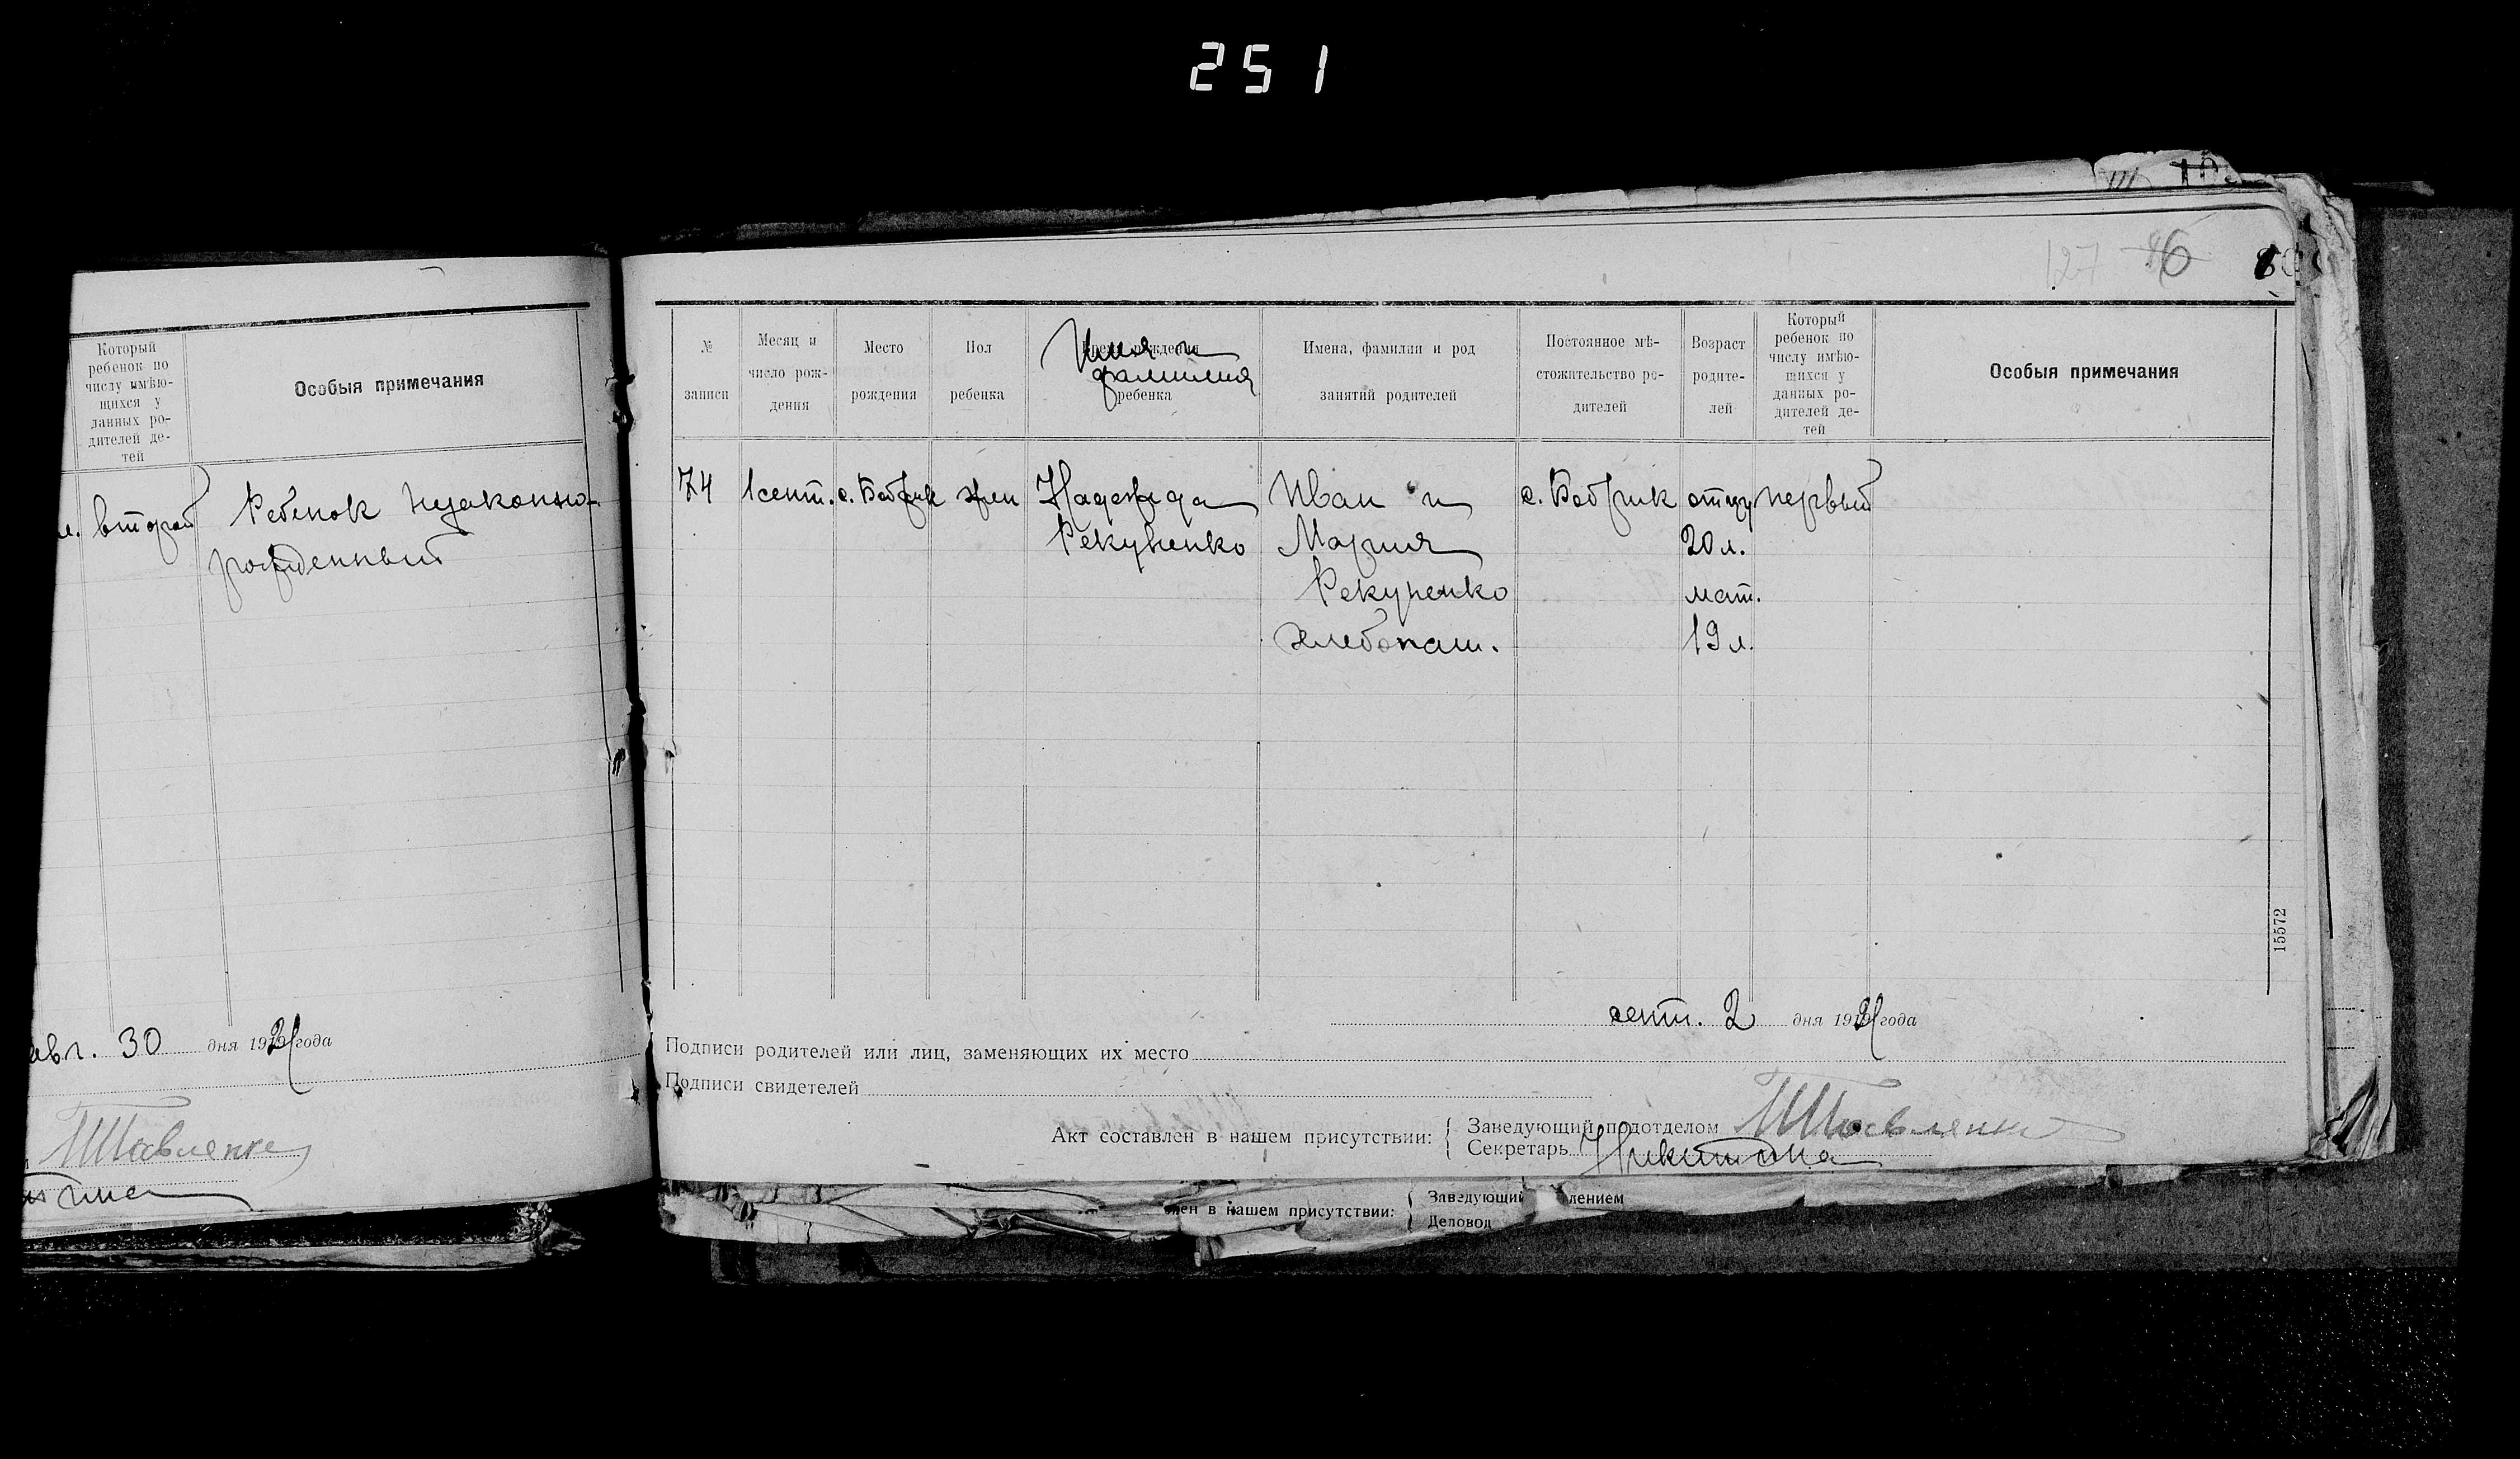 251
127 86
Который
ребенок по
числу имѣю-
щихся у
данных ро-
дителей де-
тей
Особыя примечания
л. второй
Ребенок незаконно-
рожденный
авг. 30 дня 1921 года
№
записи
Месяц и
число рож-
дения
Место
рождения
Пол
ребенка
Имя и
фамилия
ребенка
Имена, фамилии и род
занятий родителей
Постоянное мѣ-
стожительство ро-
дителей
Возраст
родите-
лей
Который
ребенок по
числу имѣю-
щихся у
данных ро-
дителей де-
тей
Особыя примечания
74
1 сент.
с. Бобрик
жен
Надежда
Рекуненко
Иван и
Мария
Рекуненко
хлебопаш.
с. Бобрик
отцу
20 л.
мат.
19 л.
первый
15572
сент. 2 дня 1921 года
Подписи родителей или лиц, заменяющих их место
Подписи свидетелей
Акт составлен в нашем присутствии:
Заведующий подотделом
Секретарь Никитина
в нашем присутствии:
Заведующий
лением
Деловод